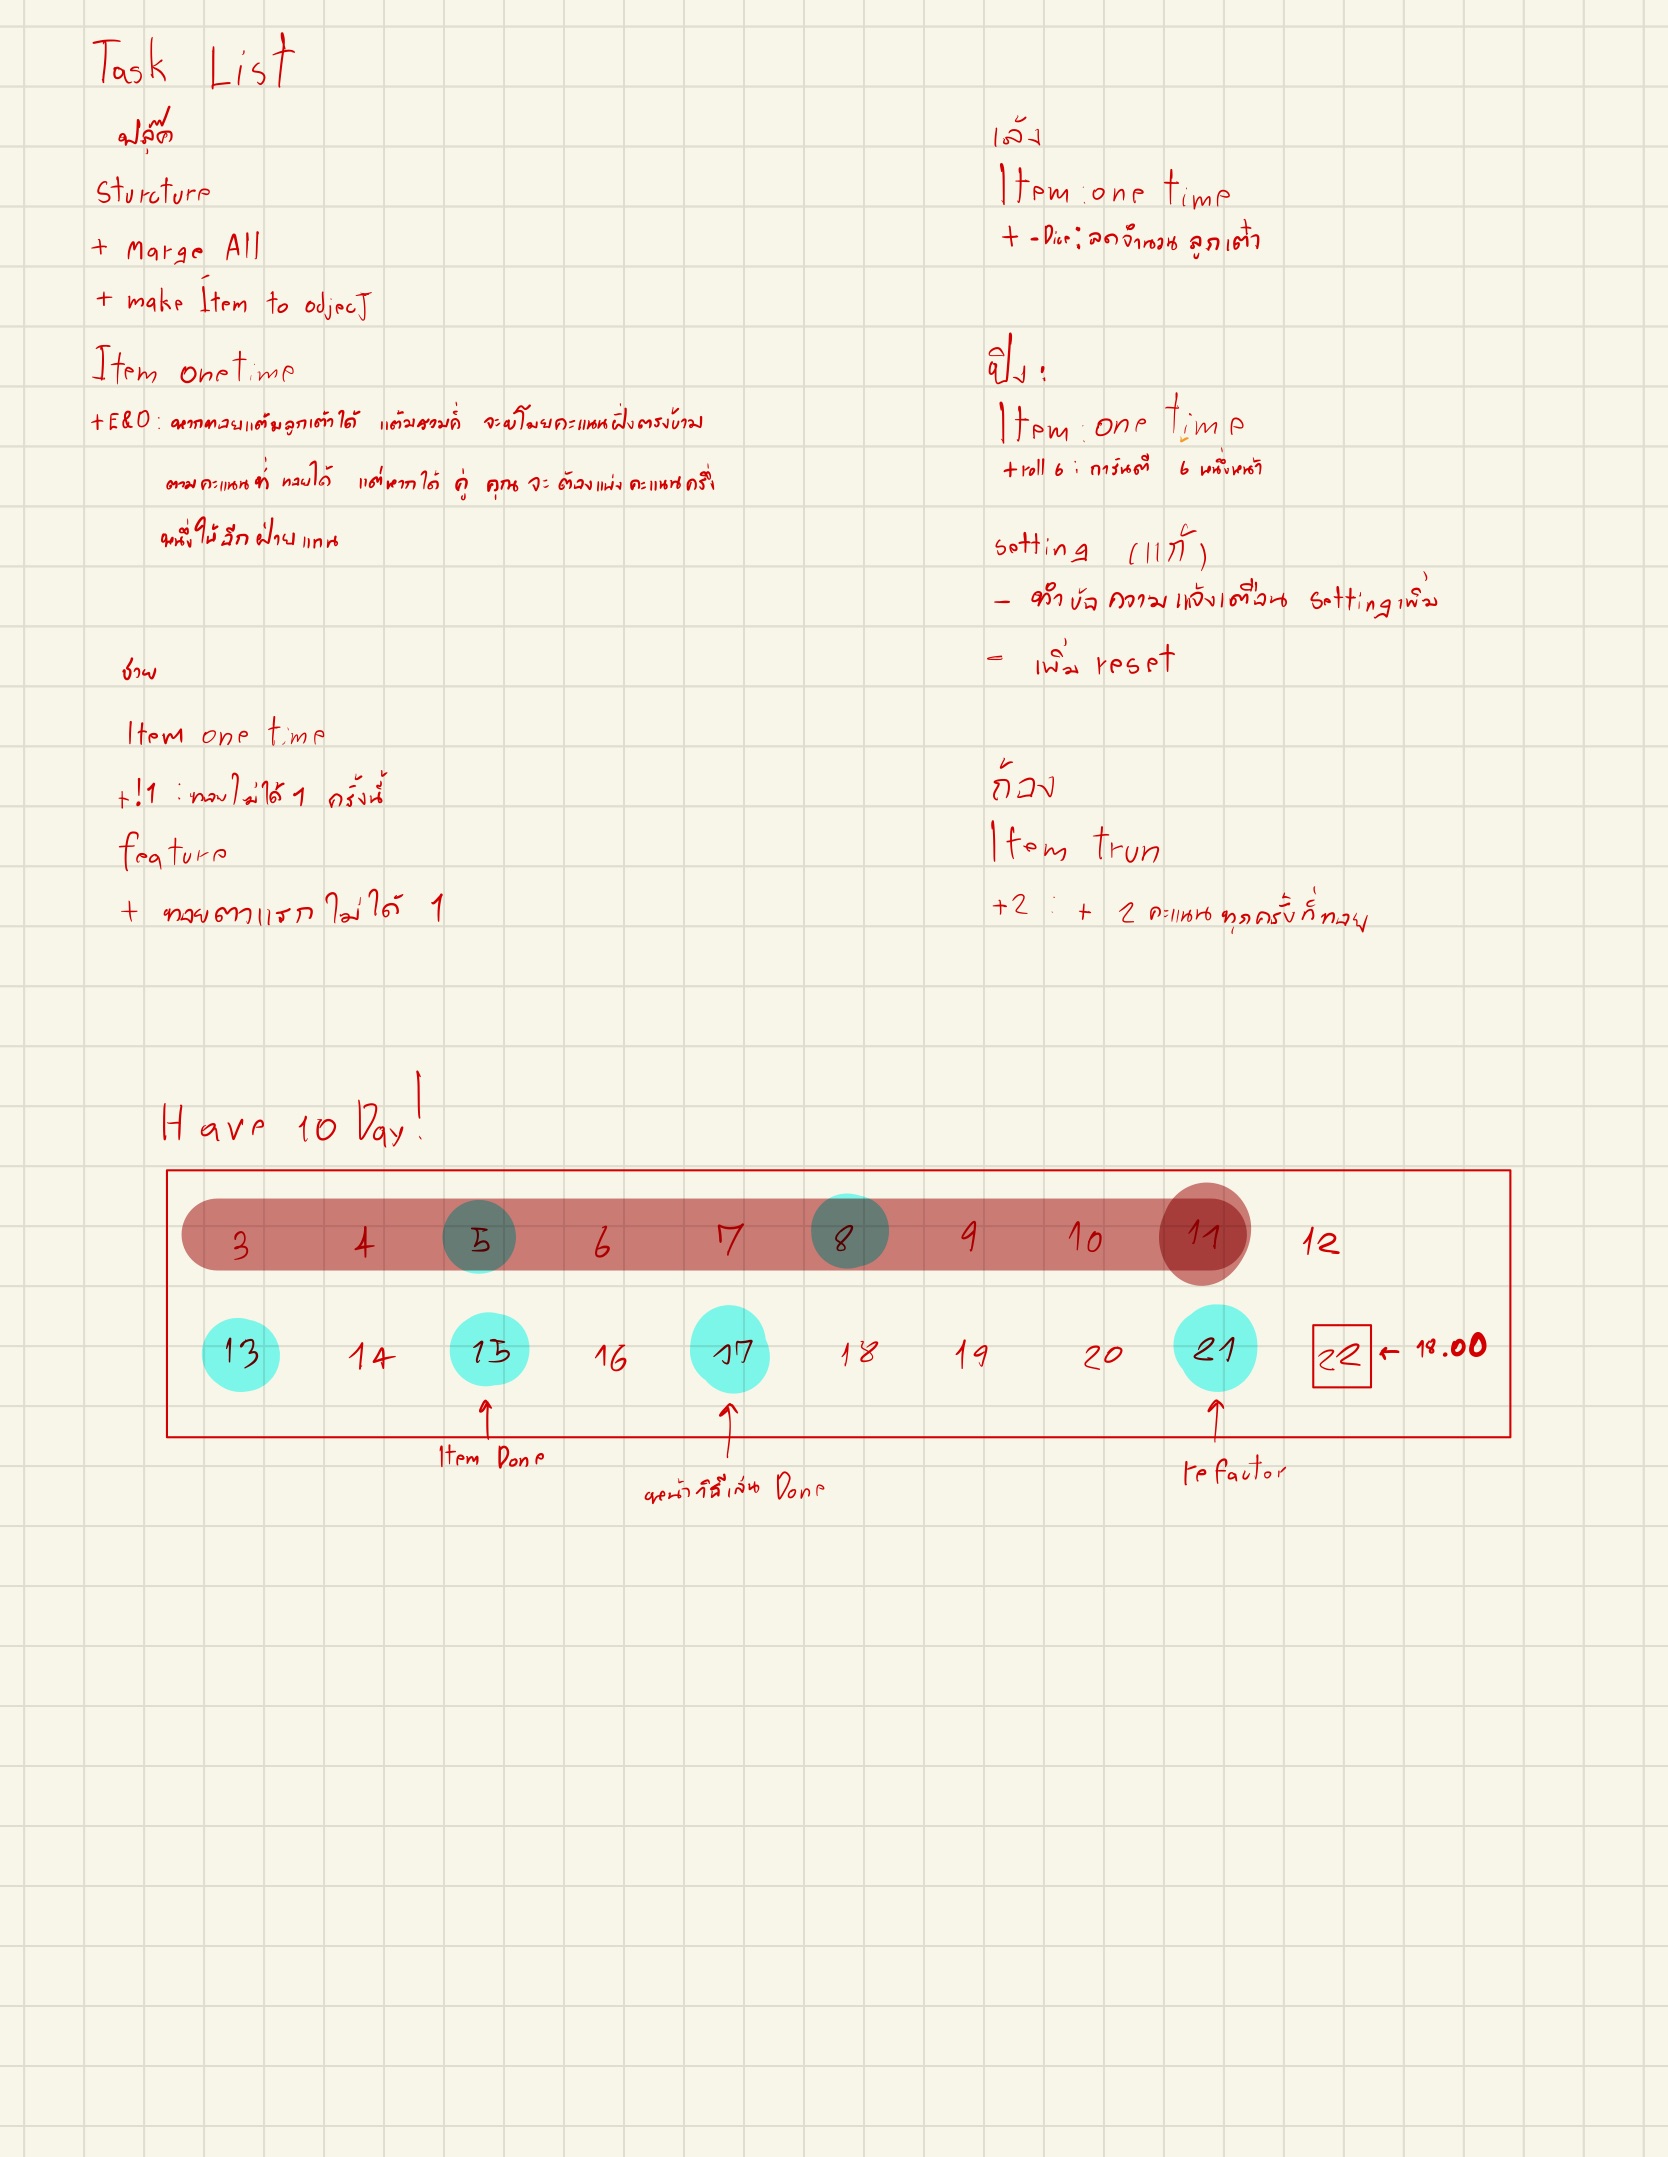 Task List
ฟลุ๊ค
Sturcture
+ Marge All
+ make Item to odject
Item onetime
+E&O : หากทอยแต้มลูกเต๋าได้ แต้มรวมคี่ จะขโมยคะแนนฝั่งตรงข้าม
ตามคะแนนที่ ทอยได้ แต่หากได้ คู่ คุณ จะ ต้องแบ่งคะแนนครึ่ง
หนึ่งให้อีกฝ่ายแทน
ช่าย
Item one time
+!1 : ทอยไม่ได้ 1 ครั้งนี้
feature
+ ทอยตาแรกไม่ได้ 1
เล้ง
Item : one time
+ -Dice : ลดจำนวน ลูกเต๋า
ปิง :
Item : one time
+roll 6 : การันตี 6 หนึ่งหน้า
setting (แก้)
- ทำข้อความแจ้งเตือน setting เพิ่ม
- เพิ่ม reset
ก้อง
Item trun
+2 : + 2 คะแนนทุกครั้งที่ทอย
Have 10 Day!
3 4 5 6 7 8 9 10 11 12
13 14 15 16 17 18 19 20 21 22 ← 18.00
Item Done
หน้าวิธีเล่น Done
refactor